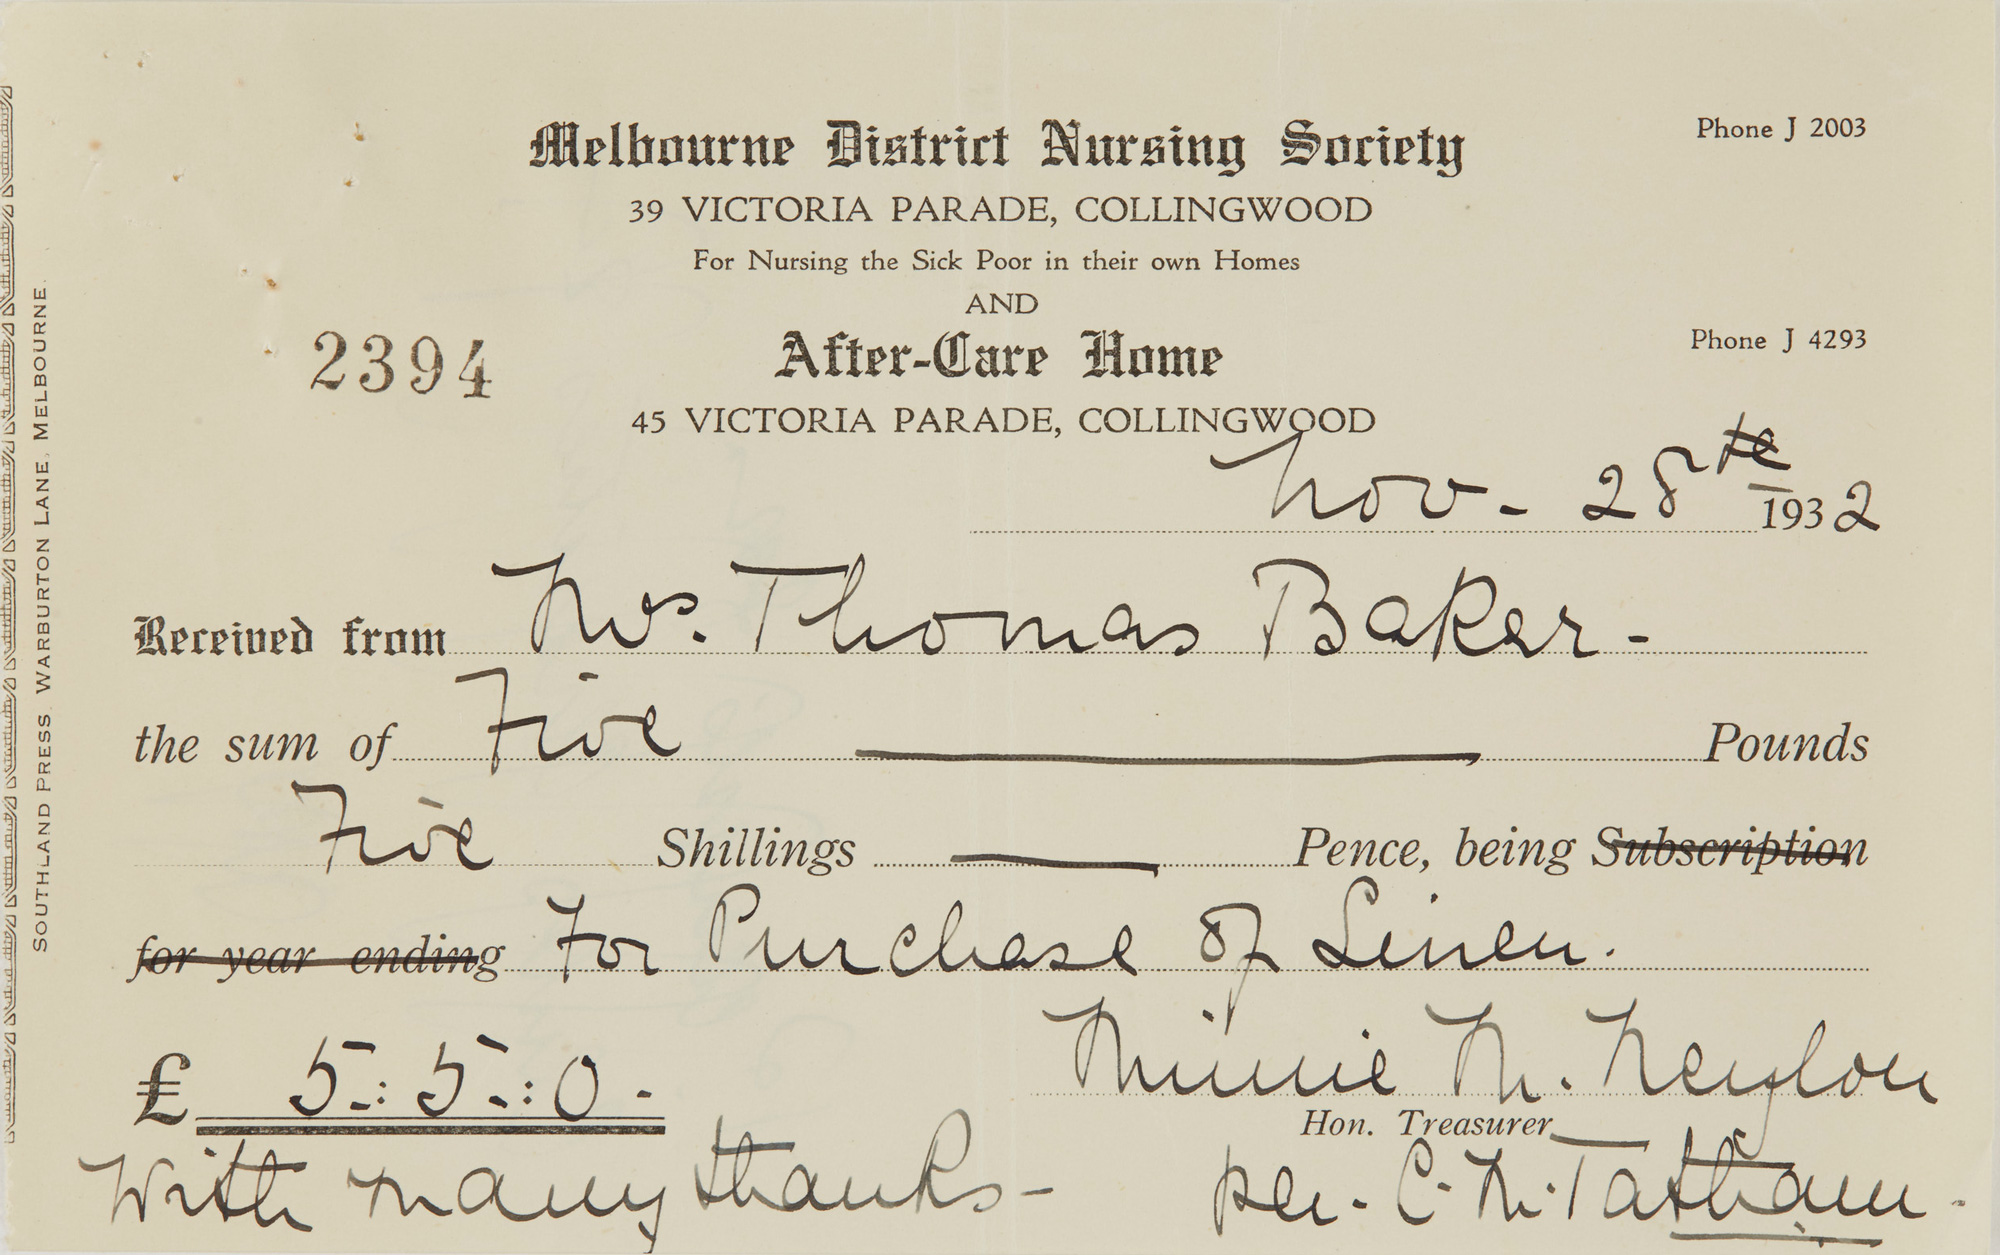 Melbourne District Nursing Society
Phone J 2003
39 VICTORIA PARADE, COLLINGWOOD
For Nursing the Sick Poor in their own Homes
AND
After-Care Home
Phone J 4293
2394
45 VICTORIA PARADE, COLLINGWOOD
Nov - 28th 1932
Received from Mrs. Thomas Baker -
the sum of Five Pounds
Five Shillings — Pence, being Subscription
for year ending For Purchase Of Linen.
£ 5-: 5-: 0 -
Minnie M. Neylon
Hon. Treasurer
With many thanks -
per. C. M. Tatham.
SOUTHLAND PRESS, WARBURTON LANE, MELBOURNE.